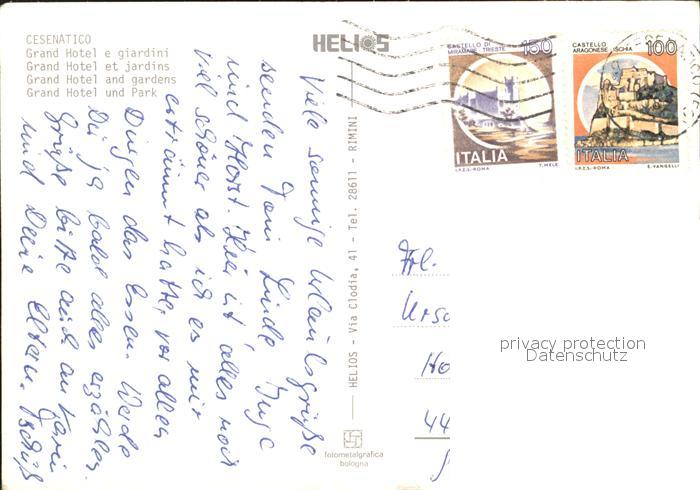 CESENATICO
Grand Hotel e giardini
Grand Hotel et jardins
Grand Hotel and gardens
Grand Hotel und Park
HELIOS
CASTELLO DI
MIRAMARE TRIESTE
150
ITALIA
I.P.Z.S.-ROMA T. MELE
CASTELLO
ARAGONESE ISCHIA
100
ITALIA
I.P.Z.S.-ROMA E. VANGELLI
Viele sonnige Urlaubsgrüße
senden Dir Linde Inge
und Horst. Hier ist alles noch
viel schöner als ich es mir
erträumt hatte, vor allen
Dingen das Essen. Werde
Dir ja bald alles erzählen.
Grüße bitte auch an
und Deine Eltern. Tschüß
HELIOS - Via Clodia, 41 - Tel. 28611 - RIMINI
fotometalgrafica
bologna
Frl.
Urs
Ho
44
privacy protection
Datenschutz